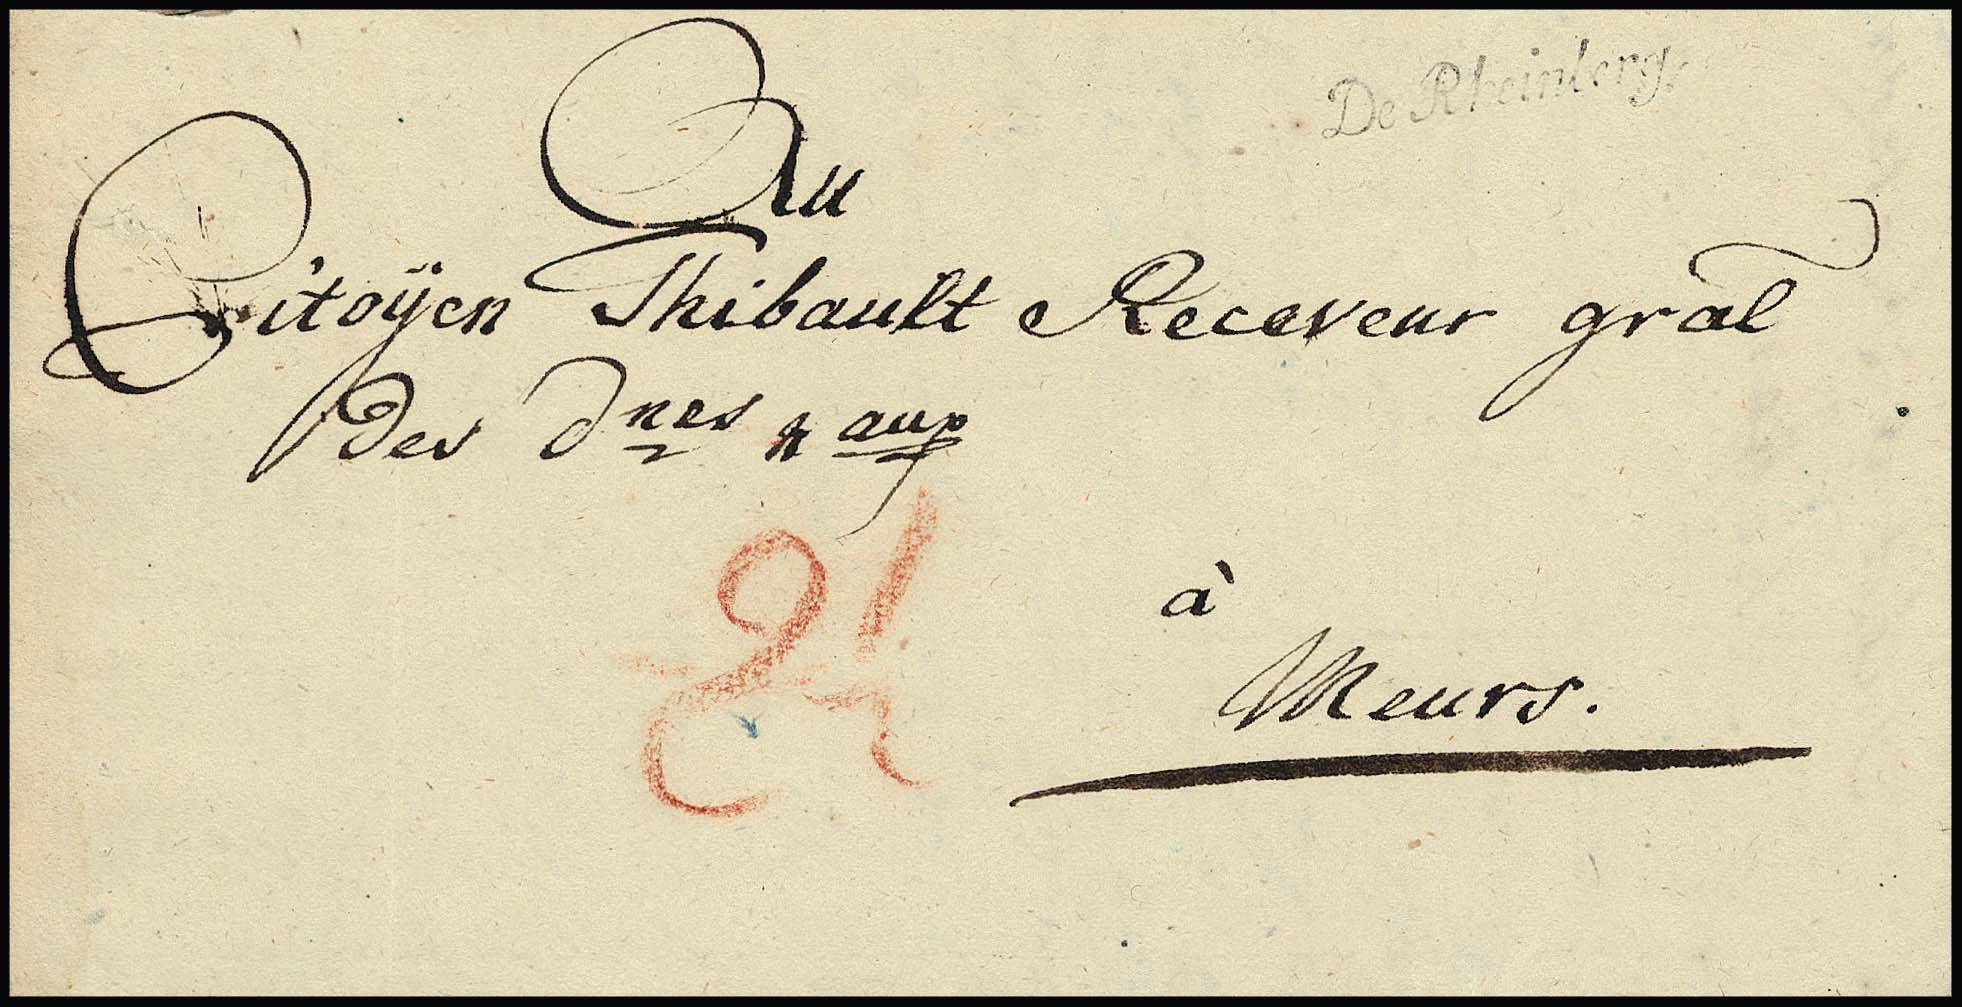 De Rheinberg.
Au
Citoÿen Thibault Receveur gral
des dnes naux
à
Meurs.